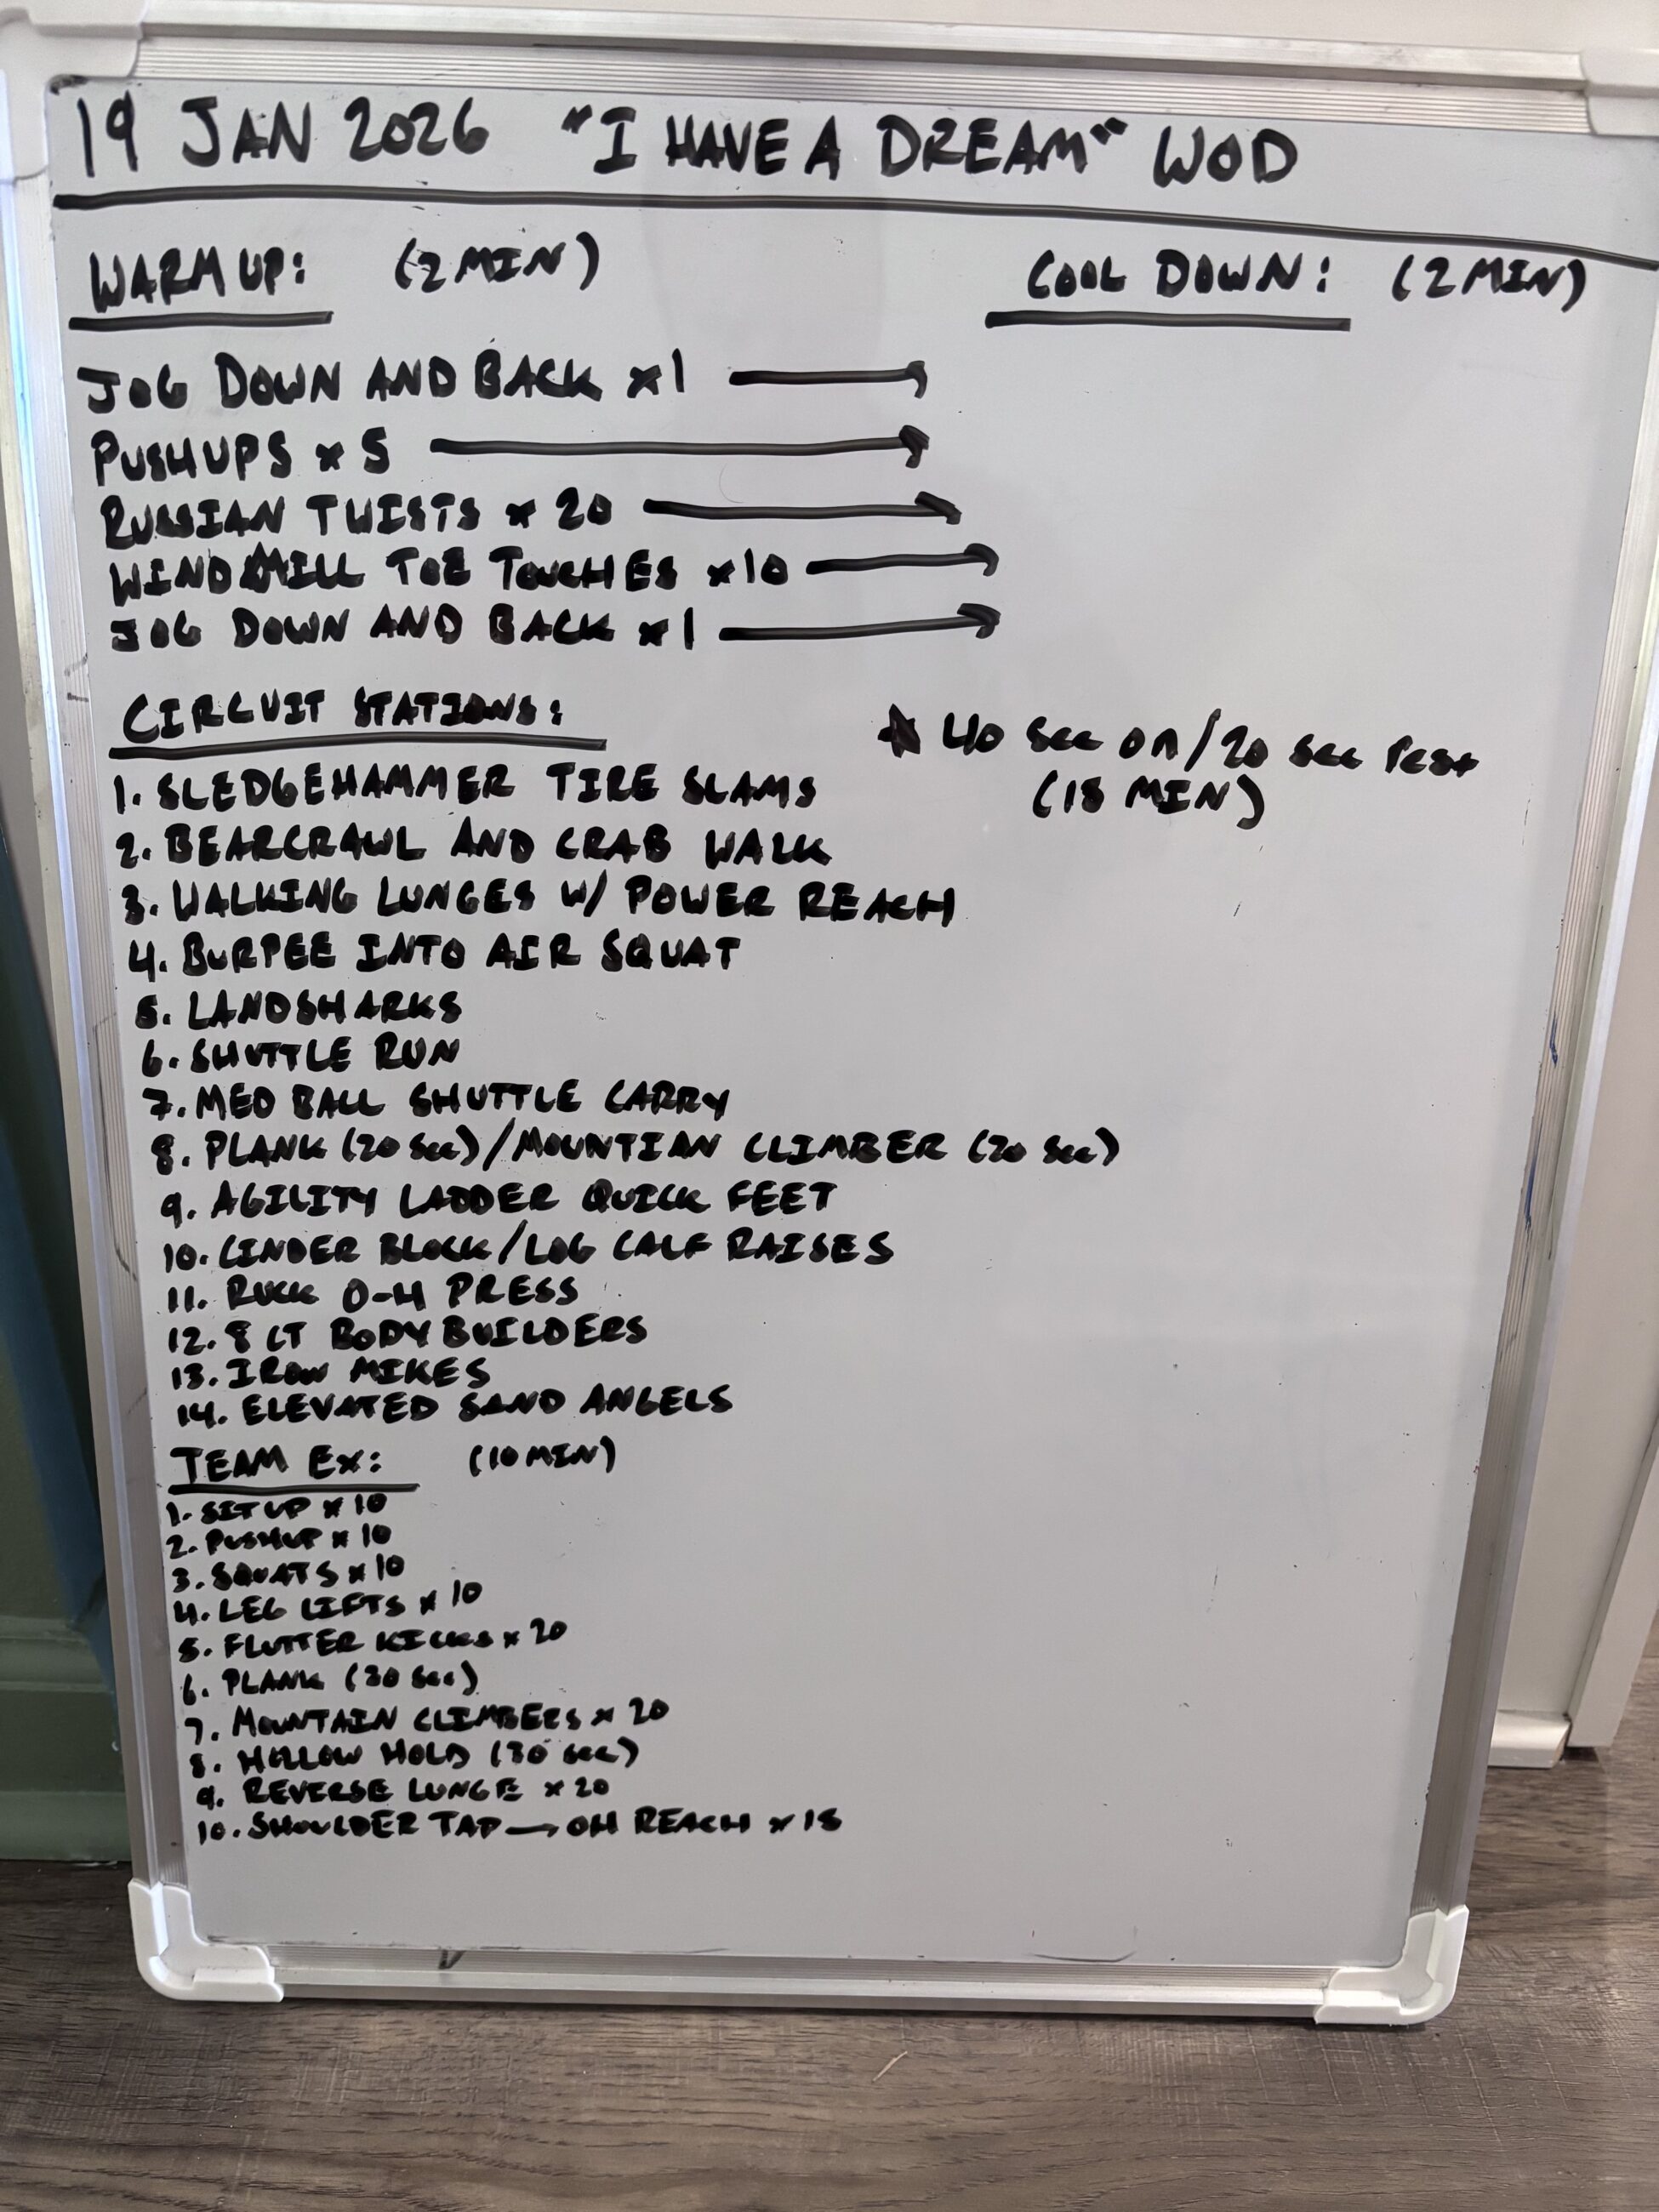 19 JAN 2026 "I HAVE A DREAM" WOD
WARM UP: (2 MIN)
COOL DOWN: (2 MIN)
JOG DOWN AND BACK x1 →
PUSHUPS x 5 →
RUSSIAN TWISTS x 20 →
WINDMILL TOE TOUCHES x10 →
JOG DOWN AND BACK x1 →
CIRCUIT STATIONS:
★ 40 Sec on/20 Sec Rest
(15 MIN)
1. SLEDGEHAMMER TIRE SLAMS
2. BEARCRAWL AND CRAB WALK
3. WALKING LUNGES W/ POWER REACH
4. BURPEE INTO AIR SQUAT
5. LANDSHARKS
6. SHUTTLE RUN
7. MED BALL SHUTTLE CARRY
8. PLANK (20 Sec)/MOUNTIAN CLIMBER (20 Sec)
9. AGILITY LADDER QUICK FEET
10. CINDER BLOCK/LOG CALF RAISES
11. RUCK O-H PRESS
12. 8 CT BODY BUILDERS
13. IRON MIKES
14. ELEVATED SAND ANGELS
TEAM EX: (10 MIN)
1. SIT UP x 10
2. PUSHUP x 10
3. SQUATS x 10
4. LEG LIFTS x 10
5. FLUTTER KICKS x 20
6. PLANK (30 Sec)
7. MOUNTAIN CLIMBERS x 20
8. HOLLOW HOLD (30 Sec)
9. REVERSE LUNGE x 20
10. SHOULDER TAP → OH REACH x 15